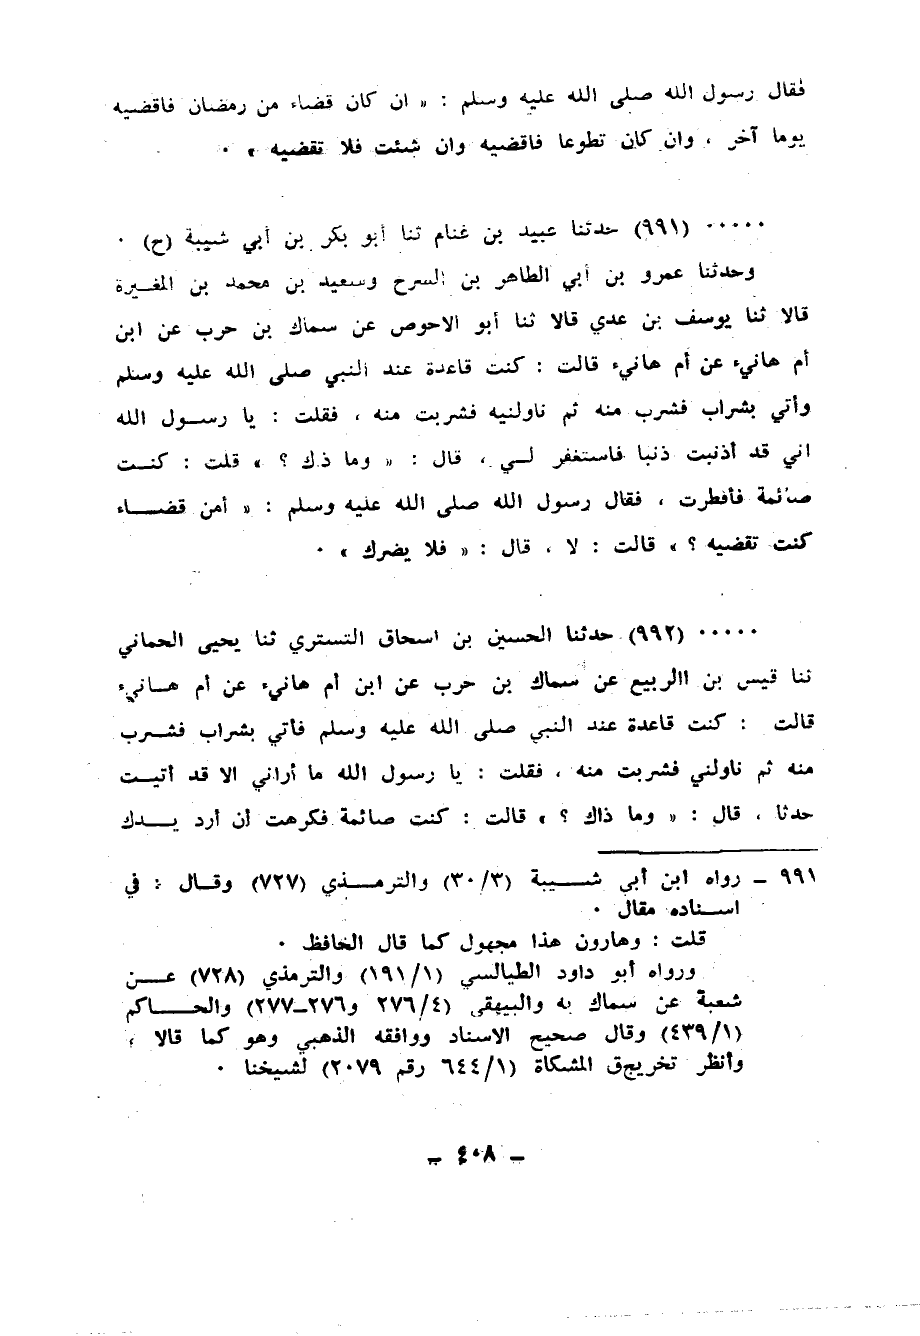 فقال رسول الله صلى الله عليه وسلم : « ان كان قضاء من رمضان فاقضيه
يوما آخر ، وان كان تطوعا فاقضيه وان شئت فلا تقضيه » ٠
٠٠٠٠٠ (٩٩١) حدثنا عبيد بن غنام ثنا أبو بكر بن أبي شيبة (ح) ٠
وحدثنا عمرو بن أبي الطاهر بن السرح وسعيد بن محمد بن المغيرة
قالا ثنا يوسف بن عدي قالا ثنا أبو الاحوص عن سماك بن حرب عن ابن
أم هانيء عن أم هانيء قالت : كنت قاعدة عند النبي صلى الله عليه وسلم
وأتي بشراب فشرب منه ثم ناولنيه فشربت منه ، فقلت : يا رسول الله
اني قد أذنبت ذنبا فاستغفر لي ، قال : « وما ذك ؟ » قلت : كنت
صائمة فأفطرت ، فقال رسول الله صلى الله عليه وسلم : « أمن قضاء
كنت تقضيه ؟ » قالت : لا ، قال : « فلا يضرك » ٠
٠٠٠٠٠ (٩٩٢) حدثنا الحسين بن اسحاق التستري ثنا يحيى الحماني
ثنا قيس بن االربيع عن سماك بن حرب عن ابن أم هانيء عن أم هانيء
قالت : كنت قاعدة عند النبي صلى الله عليه وسلم فأتي بشراب فشرب
منه ثم ناولني فشربت منه ، فقلت : يا رسول الله ما أراني الا قد أتيت
حدثا ، قال : « وما ذاك ؟ » قالت : كنت صائمة فكرهت أن أرد يدك
٩٩١ ـ رواه ابن أبي شيبة (٣٠/٣) والترمذي (٧٢٧) وقال : في
اسناده مقال ٠
قلت : وهارون هذا مجهول كما قال الحافظ ٠
ورواه أبو داود الطيالسي (١٩١/١) والترمذي (٧٢٨) عن
شعبة عن سماك به والبيهقي (٢٧٦/٤ و٢٧٦ـ٢٧٧) والحاكم
(٤٣٩/١) وقال صحيح الاسناد ووافقه الذهبي وهو كما قالا ،
وأنظر تخريجق المشكاة (٦٤٤/١ رقم ٢٠٧٩) لشيخنا ٠
ـ ٤٠٨ ـ